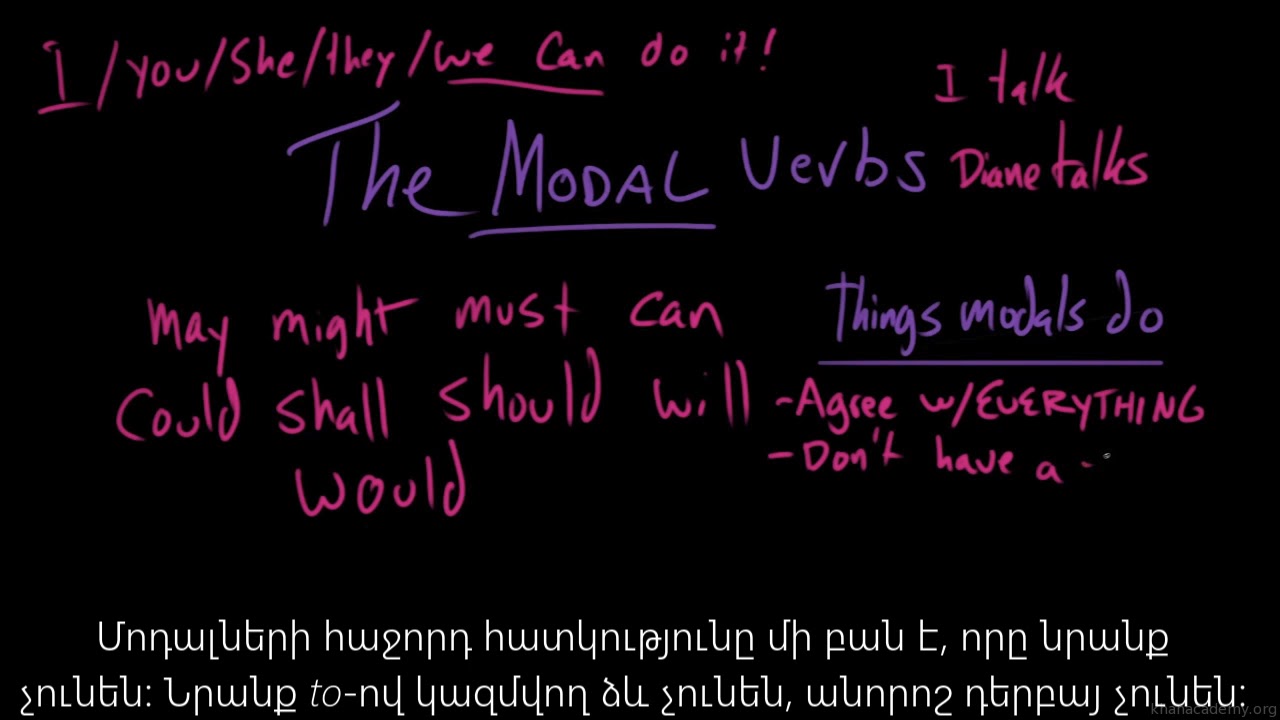 I/you/She/they/we Can do it!
I talk
The MODAL Verbs
Diane talks
may might must can
Could shall should will
would
Things modals do
-Agree w/EVERYTHING
-Don't have a -
Մոդալների հաջորդ հատկությունը մի բան է, որը նրանք
չունեն: Նրանք to-ով կազմվող ձև չունեն, անորոշ դերբայ չունեն:
khanacademy.org